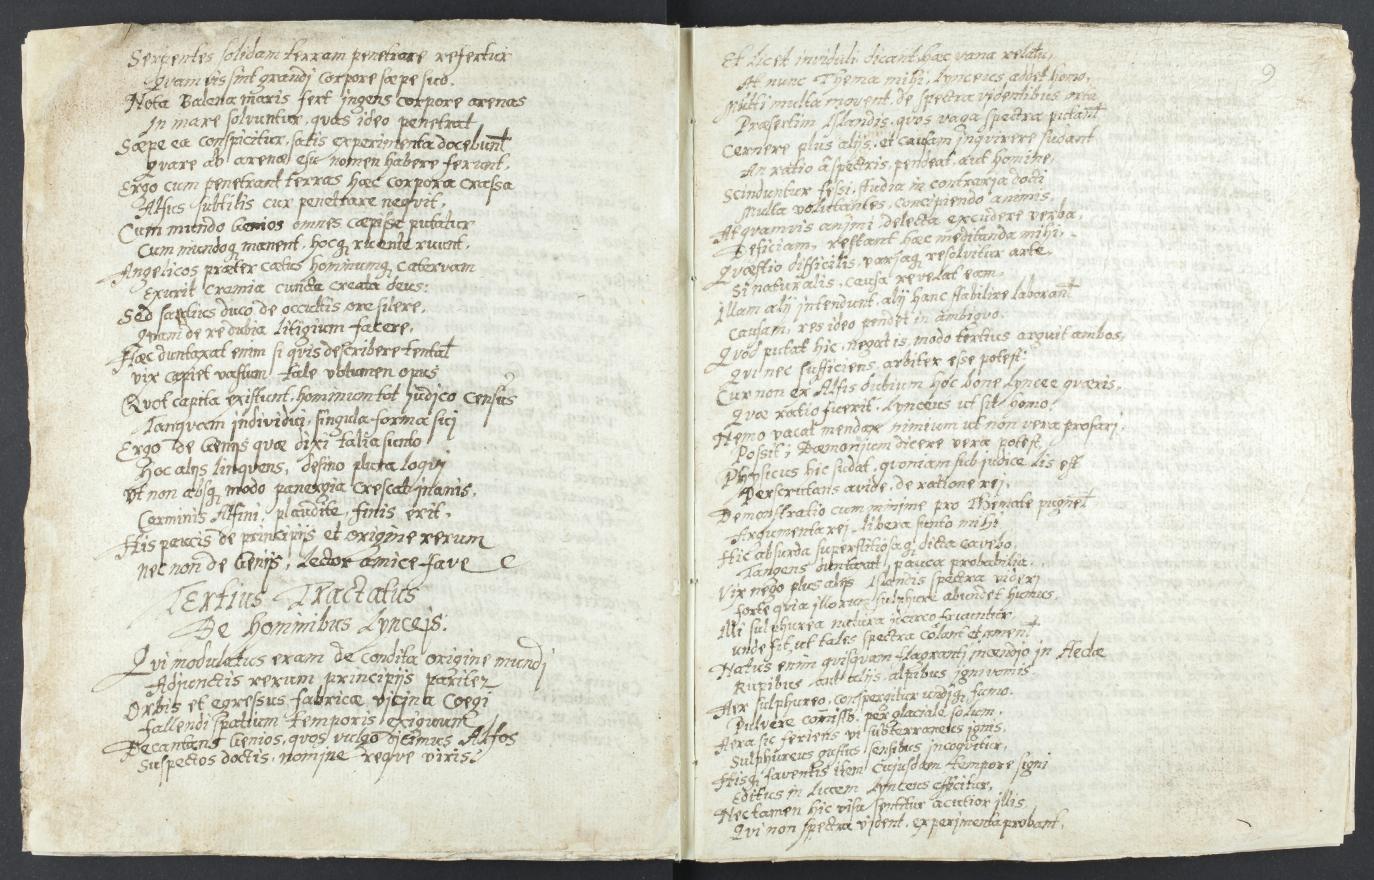 Serpentes solidam terram penetrare refertur
Quamvis sint grandi corpore sæpe suo.
Nota Balena maris fert ingens corpore arenas
In mare solvuntur, quas ideo penetrat
Sæpe ea conspicitur, satis experimenta docebunt
Quare ab arenæ esu nomen habere ferunt.
Ergo cum penetrant terras hæc corpora crassa
Alfus subtilis cur penetrare neqvit.
Cum mundo Genios omnes cæpisse putatur
Cum mundoq; manent, hocq; ruente ruunt.
Angelicos præter cætus hominumq; catervam
Exurit cremia cuncta creata deus:
Sed satius duco de occultis ore silere,
Quam de re dubia litigium facere.
Hæc duntaxat enim si qvis describere tentat
vix capiet vasum tale volumen opus
Qvot capita existunt, hominum tot judico census
Tanquam individui, singula forma sui
Ergo de Genijs quæ dixi talia sunto
Hoc alijs linquens, desino plura loqui
Ut non absq; modo panergia crescat inanis,
Carminis Alfini, plaudite, finis erit.
His paucis de principijs et origine rerum
nec non de Genijs, Lector amice fave
Tertius Tractatus
De hominibus Lynceis.
Qvi modulatus eram de condita origine mundi
Adjunctis rerum principijs pariter
Orbis et egressus fabricæ vicina coegi
fallendi spatium temporis exiguum
Decantans Genios, quos vulgo dicimus Alfos
Suspectos doctis, nomine reqve viris.
9
Et licet inviduli dicant hæc vana relatu,
At nunc Thema mihi, Lynceus addet homo,
Multi multa movent, de spectra videntibus orta
Præsertim Islandis, qvos vaga spectra putant
Cernere plus alijs, et causam inqvirere sudant
An ratio â spectris, pendeat, aut homine,
Scinduntur fissi, studia in contraria docti
Multa volutantes, concipiendo animis,
Ac qvamvis animi delecta excudere verba,
Deficiam, restant hæc meditanda mihi.
Qvæstio difficilis, variaq; resolvitur arte,
Si naturalis, causa revelat eam.
Illam alij intendunt, alij hanc stabilire laborant
Causam, res ideo pendet in ambiguo.
Qvod putat hic, negat is, modo tertius arguit ambos,
qvi nec sufficiens, arbiter esse potest.
Cur non ex Alfis dubium hoc bone Lyncee qværis,
Quæ ratio fuerit, Lynceus ut sit homo?
Nemo vacat mendax nimium ut non vera profari,
Possit; Dæmonium dicere vera potest.
Physicus hic sudat, qvoniam sub judice lis est
Perscrutans avide, de ratione rei,
Demonstratio cum minime pro Themate pugnet
Argumenta rei, libera sunto mihi
Hic absurda superstitiosaq; dicta cavebo,
Tangens duntaxat, pauca probabilia.
Vix nego plus alijs Islandis spectra videri
forte qvia illorum sulphure abundet humus,
Illi sulphurea natura
unde fit, ut tales spectra colant et ament
Natus enim quisquam flagranti incendio in Heclæ
Rupibus aut talijs, alpibus ignivomis.
Aer sulphureo, conspergitur undiq; fumo,
Pulvere commisso, per glaciale solum.
Aera sic feriens vi subterraneus ignis,
Sulphureus gustus sensibus incoqvitur,
Hisq; faventis item cujusdam tempore signi
Editus in lucem Lynceus efficitur,
Nec tamen hic visu sentitur acutior illis
Qvi non spectra vident, experimenta probant.